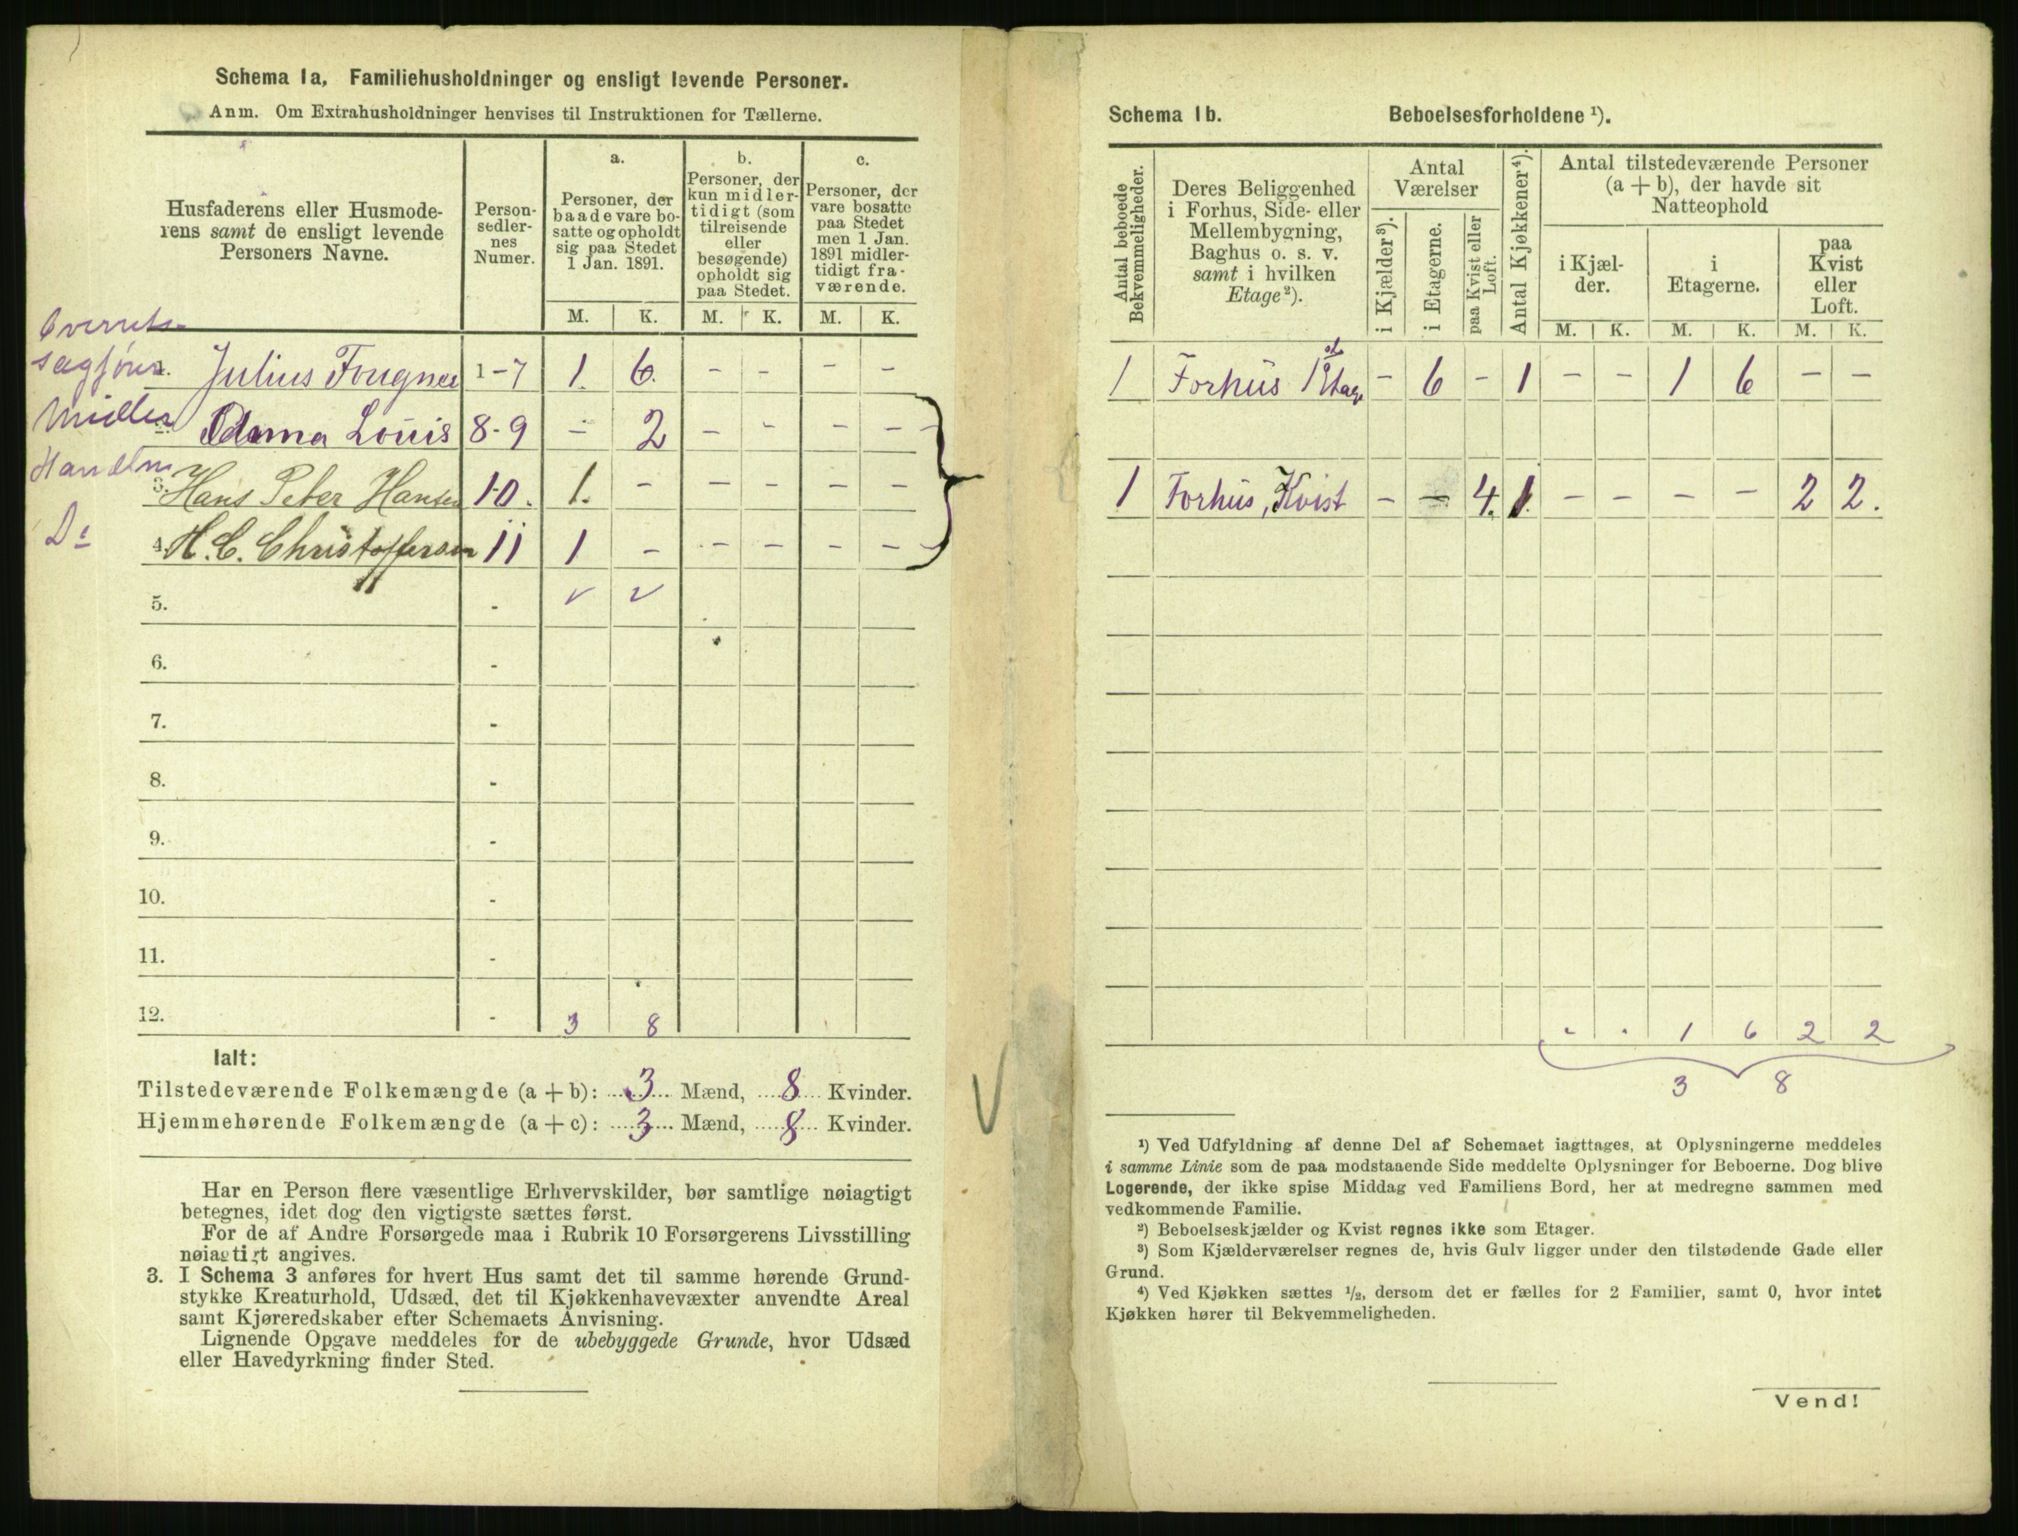 Schema 1a, Familiehusholdninger og ensligt levende Personer.
Anm. Om Extrahusholdninger henvises til Instruktionen for Tællerne.
Husfaderens eller Husmode-
rens samt de ensligt levende
Personers Navne.
Person-
sedler-
nes
Numer.
a.
Personer, der
baade vare bo-
satte og opholdt
sig paa Stedet
1 Jan. 1891.
b.
Personer, der
kun midler-
tidigt (som
tilreisende
eller
besøgende)
opholdt sig
paa Stedet.
c.
Personer, der
vare bosatte
paa Stedet
men 1 Jan.
1891 midler-
tidigt fra-
værende.
M. K. M. K. M. K.
Overrets-
sagfører
1. Julius Fougner 1-7 1. 6. - - - -
Louis 8-9 - 2 - - - -
Handelsm
3. Hans Peter Hansen 10. 1. - - - - -
Do
4. H. C. Christoffersen 11 1 - - - - -
5. - ✓ ✓
6. -
7. -
8. -
9. -
10. -
11. -
12. - 3 8
Ialt:
Tilstedeværende Folkemængde (a + b): 3 Mænd, 8 Kvinder.
Hjemmehørende Folkemængde (a + c): 3 Mænd, 8 Kvinder.
Har en Person flere væsentlige Erhvervskilder, bør samtlige nøiagtigt
betegnes, idet dog den vigtigste sættes først.
For de af Andre Forsørgede maa i Rubrik 10 Forsørgerens Livsstilling
nøiagtigt angives.
3. I Schema 3 anføres for hvert Hus samt det til samme hørende Grund-
stykke Kreaturhold, Udsæd, det til Kjøkkenhavevæxter anvendte Areal
samt Kjøreredskaber efter Schemaets Anvisning.
Lignende Opgave meddeles for de ubebyggede Grunde, hvor Udsæd
eller Havedyrkning finder Sted.
Schema 1b. Beboelsesforholdene ¹).
Antal beboede
Bekvemmeligheder.
Deres Beliggenhed
i Forhus, Side- eller
Mellembygning,
Baghus o. s. v.
samt i hvilken
Etage ²).
Antal
Værelser
i Kjælder ³).
i Etagerne.
paa Kvist eller
Loft.
Antal Kjøkkener ⁴).
Antal tilstedeværende Personer
(a + b), der havde sit
Natteophold
i Kjæl-
der.
i
Etagerne.
paa
Kvist
eller
Loft.
M. K. M. K. M. K.
1 Forhus 1ste Etage - 6 - 1 - - 1 6 - -
1 Forhus, Kvist - - 4. 1. - - - - 2 2.
- - 1 6 2 2
3 8
¹) Ved Udfyldning af denne Del af Schemaet iagttages, at Oplysningerne meddeles
i samme Linie som de paa modstaaende Side meddelte Oplysninger for Beboerne. Dog blive
Logerende, der ikke spise Middag ved Familiens Bord, her at medregne sammen med
vedkommende Familie.
²) Beboelseskjælder og Kvist regnes ikke som Etager.
³) Som Kjælderværelser regnes de, hvis Gulv ligger under den tilstødende Gade eller
Grund.
⁴) Ved Kjøkken sættes ½, dersom det er fælles for 2 Familier, samt 0, hvor intet
Kjøkken hører til Bekvemmeligheden.
Vend!